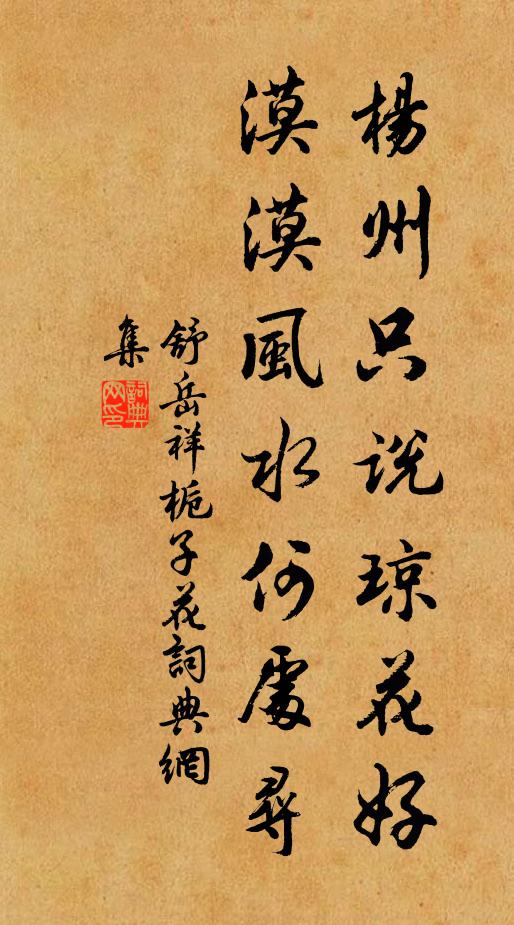 楊州只説琼花好
漠漠風水何處尋
舒岳祥栀子花詞典網
集
詞典网印